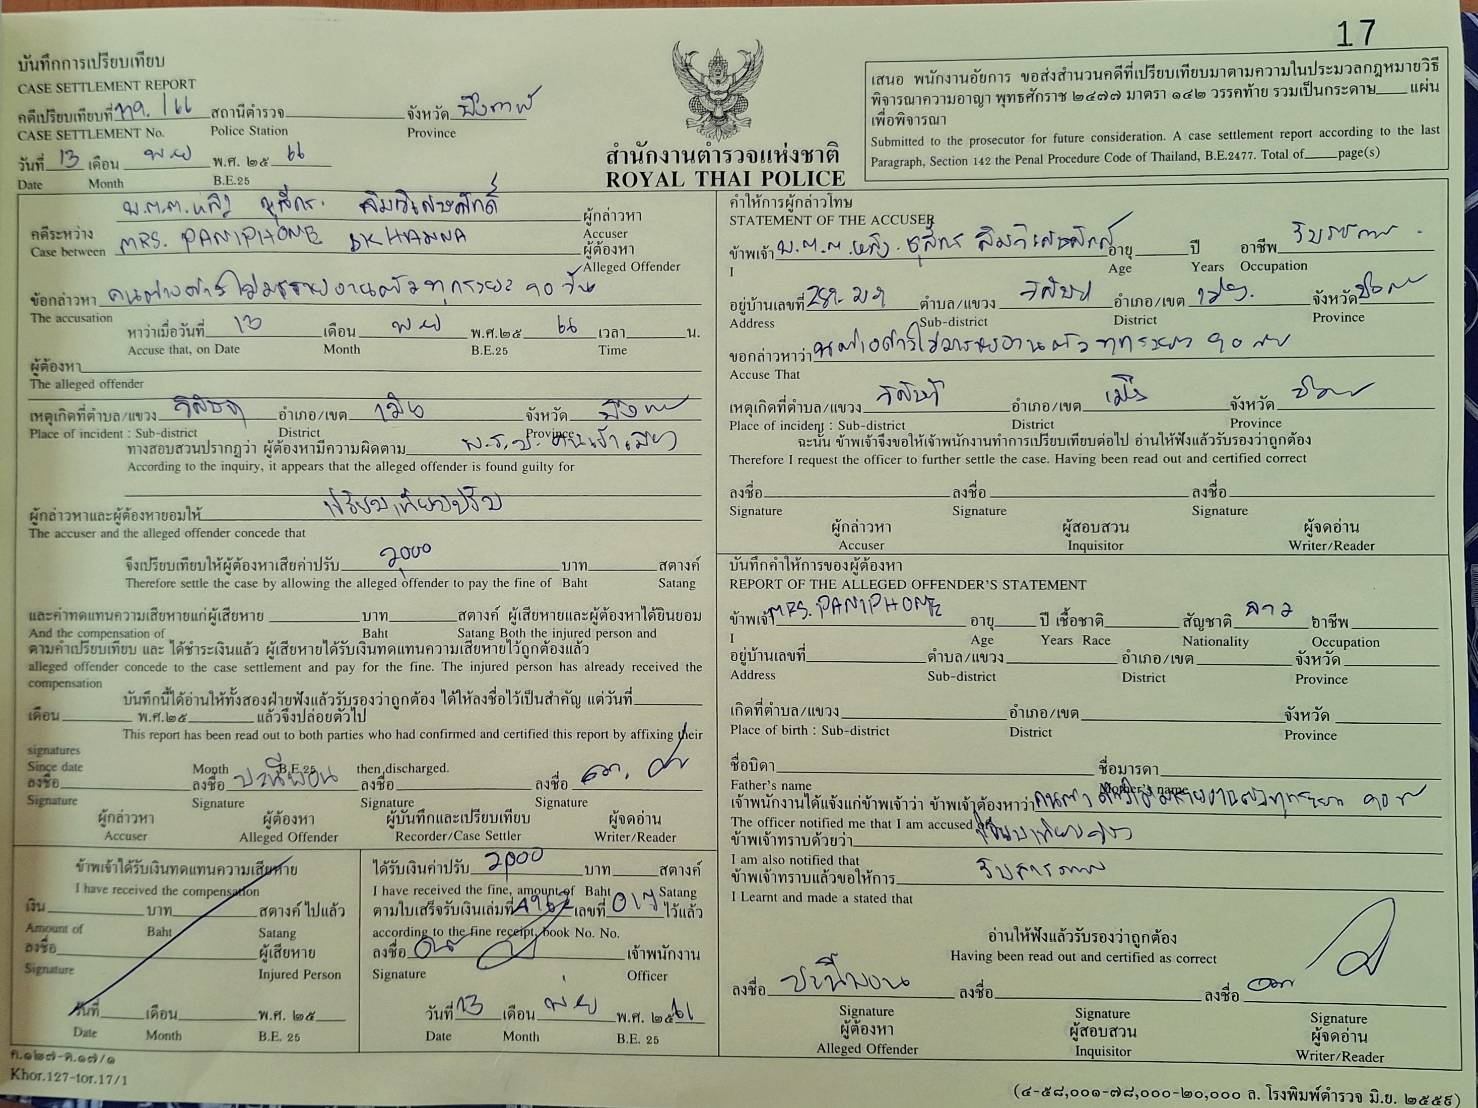 17
บันทึกการเปรียบเทียบ
CASE SETTLEMENT REPORT
คดีเปรียบเทียบที่ /๖๖ สถานีตำรวจ จังหวัด พังงา
CASE SETTLEMENT No. Police Station Province
วันที่ 13 เดือน พ.ย พ.ศ. ๒๕ ๖๖
Date Month B.E.25
สำนักงานตำรวจแห่งชาติ
ROYAL THAI POLICE
เสนอ พนักงานอัยการ ขอส่งสำนวนคดีที่เปรียบเทียบมาตามความในประมวลกฎหมายวิธี
พิจารณาความอาญา พุทธศักราช ๒๔๗๗ มาตรา ๑๔๒ วรรคท้าย รวมเป็นกระดาษ แผ่น
เพื่อพิจารณา
Submitted to the prosecutor for future consideration. A case settlement report according to the last
Paragraph, Section 142 the Penal Procedure Code of Thailand, B.E.2477. Total of page(s)
พ.ต.ต.หญิง
ผู้กล่าวหา
คดีระหว่าง MRS. PANIPHONE Accuser
ผู้ต้องหา
Case between Alleged Offender
ข้อกล่าวหา คนต่างด้าวไม่มารายงานตัวทุกระยะ ๙๐ วัน
The accusation
หาว่าเมื่อวันที่ 13 เดือน พ.ย พ.ศ.๒๕ ๖๖ เวลา น.
Accuse that, on Date Month B.E.25 Time
ผู้ต้องหา
The alleged offender
เหตุเกิดที่ตำบล/แขวง อำเภอ/เขต เมือง จังหวัด พังงา
Place of incident : Sub-district District Province
ทางสอบสวนปรากฏว่า ผู้ต้องหามีความผิดตาม พ.ร.บ. คนเข้าเมือง
According to the inquiry, it appears that the alleged offender is found guilty for
ผู้กล่าวหาและผู้ต้องหายอมให้ เปรียบเทียบปรับ
The accuser and the alleged offender concede that
จึงเปรียบเทียบให้ผู้ต้องหาเสียค่าปรับ 2,000 บาท สตางค์
Therefore settle the case by allowing the alleged offender to pay the fine of Baht Satang
และค่าทดแทนความเสียหายแก่ผู้เสียหาย บาท สตางค์ ผู้เสียหายและผู้ต้องหาได้ยินยอม
And the compensation of Baht Satang Both the injured person and
ตามคำเปรียบเทียบ และ ได้ชำระเงินแล้ว ผู้เสียหายได้รับเงินทดแทนความเสียหายไว้ถูกต้องแล้ว
alleged offender concede to the case settlement and pay for the fine. The injured person has already received the
compensation
บันทึกนี้ได้อ่านให้ทั้งสองฝ่ายฟังแล้วรับรองว่าถูกต้อง ได้ให้ลงชื่อไว้เป็นสำคัญ แต่วันที่
เดือน พ.ศ.๒๕ แล้วจึงปล่อยตัวไป
This report has been read out to both parties who had confirmed and certified this report by affixing their
signatures
Since date Month B.E.25 then discharged.
ลงชื่อ ลงชื่อ ปะนีพอน ลงชื่อ ลงชื่อ
Signature Signature Signature Signature
ผู้กล่าวหา ผู้ต้องหา ผู้บันทึกและเปรียบเทียบ ผู้จดอ่าน
Accuser Alleged Offender Recorder/Case Settler Writer/Reader
ข้าพเจ้าได้รับเงินทดแทนความเสียหาย
I have received the compensation
เงิน บาท สตางค์ ไปแล้ว
Amount of Baht Satang
ลงชื่อ ผู้เสียหาย
Signature Injured Person
วันที่ เดือน พ.ศ. ๒๕
Date Month B.E. 25
ได้รับเงินค่าปรับ 2,000 บาท สตางค์
I have received the fine, amount of Baht Satang
ตามใบเสร็จรับเงินเล่มที่ เลขที่ 017 ไว้แล้ว
according to the fine receipt, book No. No.
ลงชื่อ เจ้าพนักงาน
Signature Officer
วันที่ 13 เดือน พ.ย พ.ศ. ๒๕ ๖๖
Date Month B.E. 25
ค.๑๒๗-ต.๑๗/๑
Khor.127-tor.17/1
คำให้การผู้กล่าวโทษ
STATEMENT OF THE ACCUSER
ข้าพเจ้า พ.ต.ต.หญิง อายุ ปี อาชีพ รับราชการ
I Age Years Occupation
อยู่บ้านเลขที่ ตำบล/แขวง อำเภอ/เขต เมือง จังหวัด พังงา
Address Sub-district District Province
ขอกล่าวหาว่า คนต่างด้าวไม่มารายงานตัวทุกระยะ ๙๐ วัน
Accuse That
เหตุเกิดที่ตำบล/แขวง อำเภอ/เขต เมือง จังหวัด พังงา
Place of incident : Sub-district District Province
ฉะนั้น ข้าพเจ้าจึงขอให้เจ้าพนักงานทำการเปรียบเทียบต่อไป อ่านให้ฟังแล้วรับรองว่าถูกต้อง
Therefore I request the officer to further settle the case. Having been read out and certified correct
ลงชื่อ ลงชื่อ ลงชื่อ
Signature Signature Signature
ผู้กล่าวหา ผู้สอบสวน ผู้จดอ่าน
Accuser Inquisitor Writer/Reader
บันทึกคำให้การของผู้ต้องหา
REPORT OF THE ALLEGED OFFENDER'S STATEMENT
ข้าพเจ้า MRS. PANIPHONE อายุ ปี เชื้อชาติ สัญชาติ ลาว อาชีพ
I Age Years Race Nationality Occupation
อยู่บ้านเลขที่ ตำบล/แขวง อำเภอ/เขต จังหวัด
Address Sub-district District Province
เกิดที่ตำบล/แขวง อำเภอ/เขต จังหวัด
Place of birth : Sub-district District Province
ชื่อบิดา ชื่อมารดา
Father's name Mother's name
เจ้าพนักงานได้แจ้งแก่ข้าพเจ้าว่า ข้าพเจ้าต้องหาว่า คนต่างด้าวไม่มารายงานตัวทุกระยะ ๙๐ วัน
The officer notified me that I am accused
ข้าพเจ้าทราบด้วยว่า เปรียบเทียบปรับ
I am also notified that
ข้าพเจ้าทราบแล้วขอให้การ รับสารภาพ
I Learnt and made a stated that
อ่านให้ฟังแล้วรับรองว่าถูกต้อง
Having been read out and certified as correct
ลงชื่อ ปะนีพอน ลงชื่อ ลงชื่อ
Signature Signature Signature
ผู้ต้องหา ผู้สอบสวน ผู้จดอ่าน
Alleged Offender Inquisitor Writer/Reader
(๔-๕๘,๐๐๑-๗๘,๐๐๐-๒๐,๐๐๐ ล. โรงพิมพ์ตำรวจ มิ.ย. ๒๕๕๙)